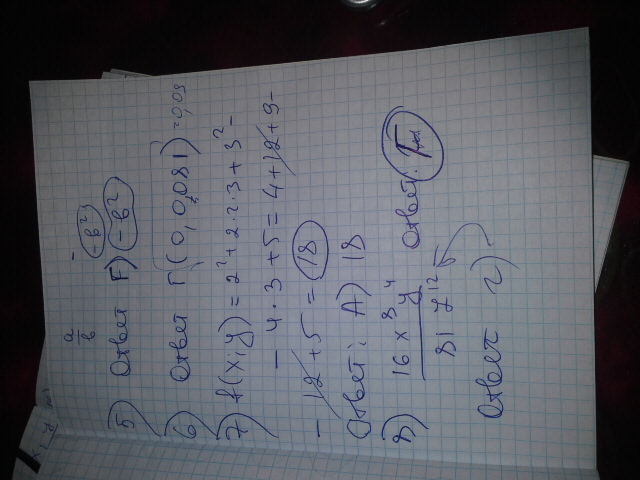 a/b
-b²)
5) Ответ Г) -b²
6) Ответ Г (0,0081) = 0,09
7) f(x;y) = 2² + 2·2·3 + 3² -
- 4·3 + 5 = 4 + 12 + 9 -
- 12 + 5 = 18
Ответ: А) 18
8) 16x⁸y⁴ / 81 y¹² Ответ: Г
Ответ г).